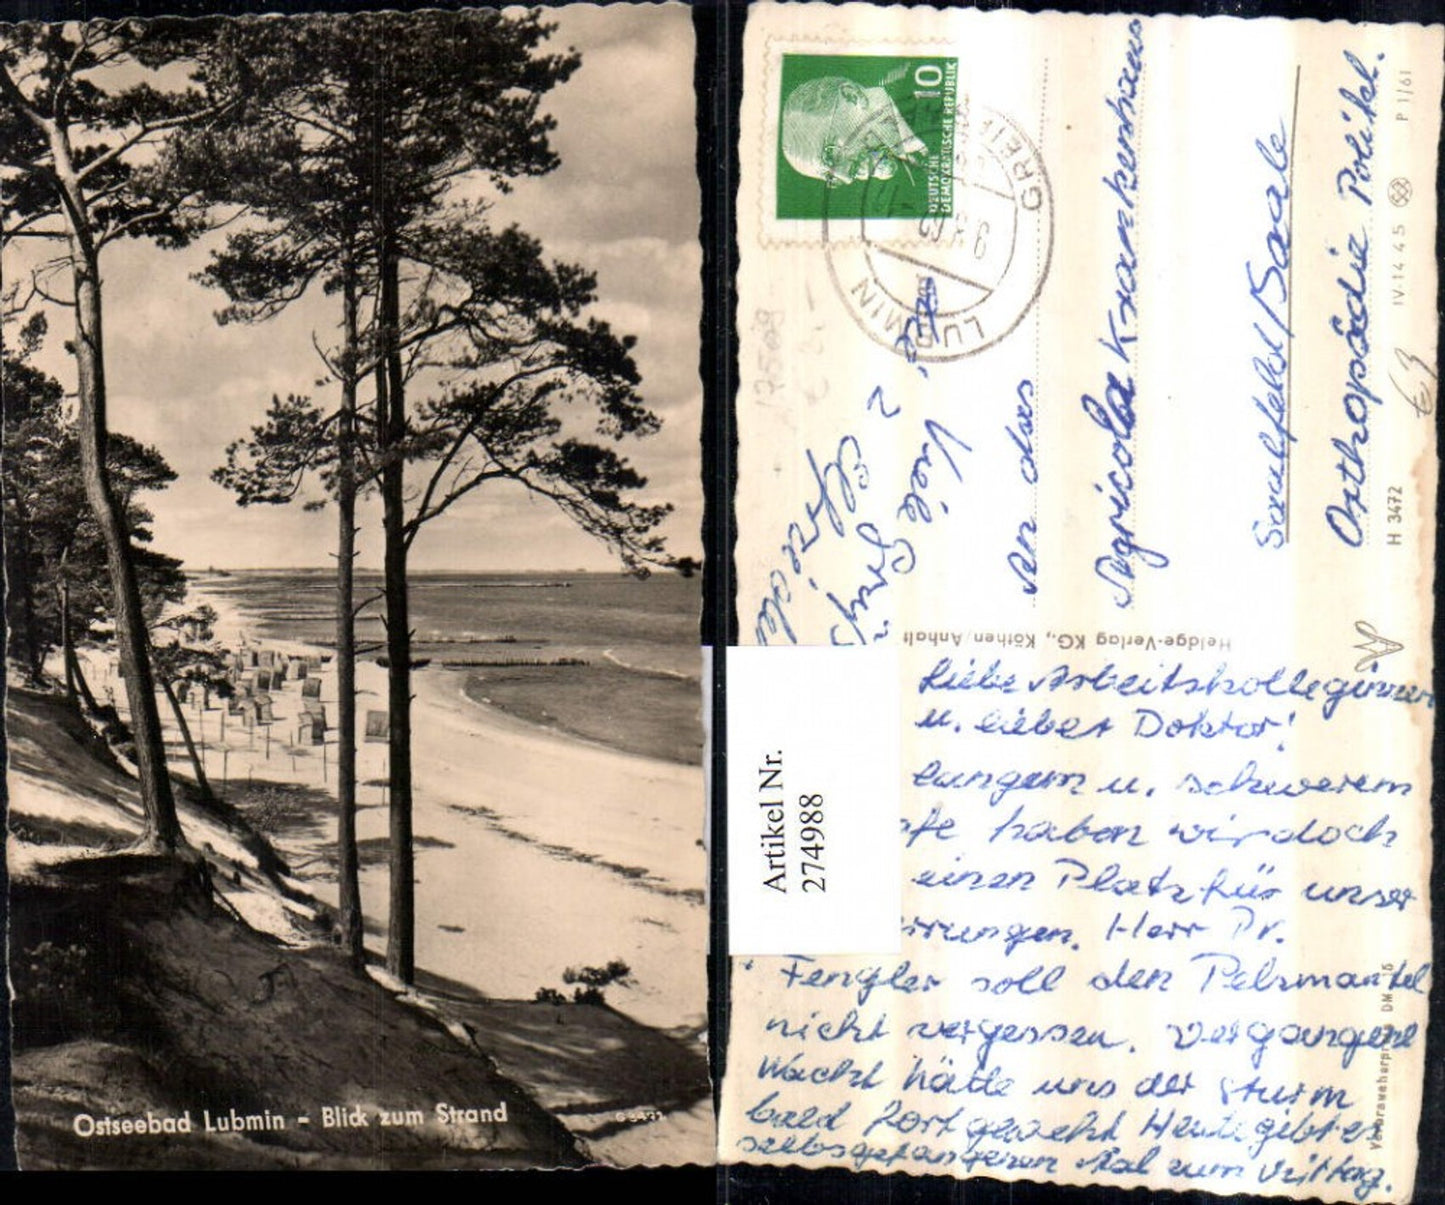 Ostseebad Lubmin – Blick zum Strand
G 3472
10
DEUTSCHE
DEMOKRATISCHE REPUBLIK
LUBMIN
Artikel Nr.
274988
An das
Agricola Krankenhaus
Saalfeld/Saale
Orthopädie Polikl.
H 3472
IV-14 45
P 1/61
Heldge-Verlag KG., Köthen/Anhalt
Liebe Arbeitskolleginnen
u. lieber Doktor!
langem u. schwerem
haben wir doch
einen Platz für unser
Herr Dr.
Fengler soll den Pelzmantel
nicht vergessen. Vergangene
Nacht hätte uns der Sturm
bald fortgeweht Heute gibt es
selbstgefangenen Aal zum Mittag.
Viele
Grüße